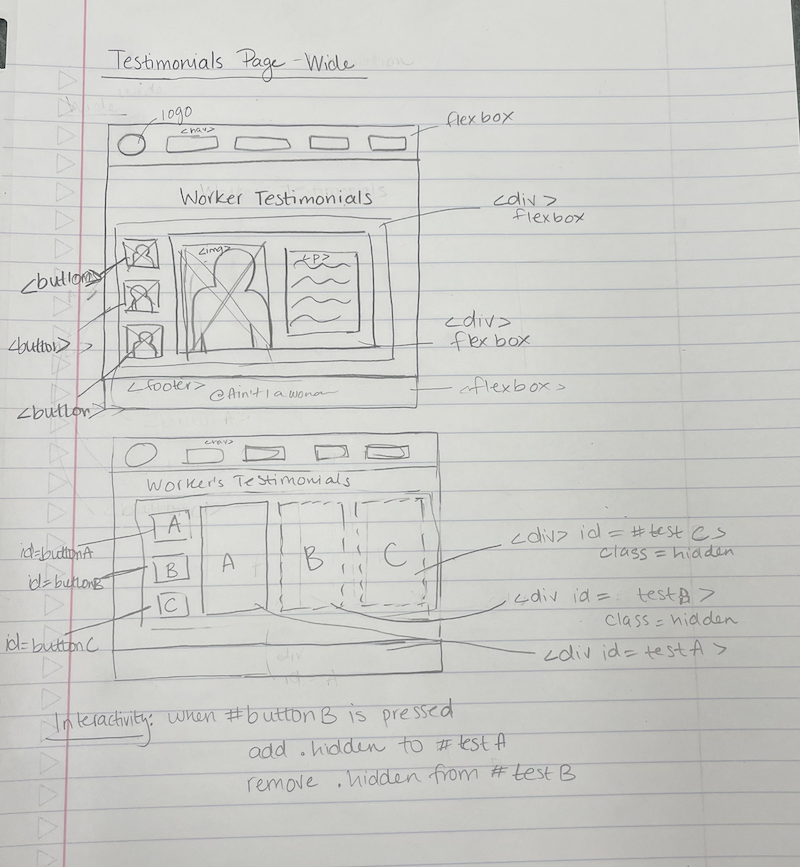 Testimonials Page - Wide
logo
<nav>
flexbox
Worker Testimonials
<div>
flexbox
<img>
<P>
<button>
<button>
<button>
<div>
flexbox
<footer>
@Ain't I a
<flexbox>
<nav>
Worker's Testimonials
A
B
C
A
B
C
id=buttonA
id=buttonB
id=buttonC
<div> id = #test C >
class = hidden
<div id = testB >
class = hidden
<div id = testA >
Interactivity: when #buttonB is pressed
add .hidden to #testA
remove .hidden from #testB